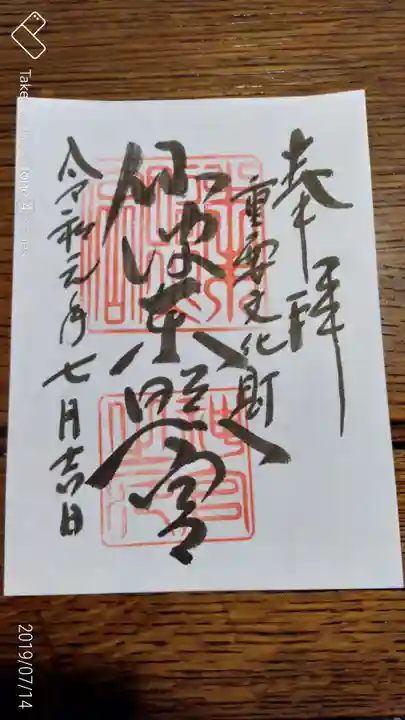 奉拝
重要文化財
仙波東照宮
令和元年七月吉日
2019/07/14